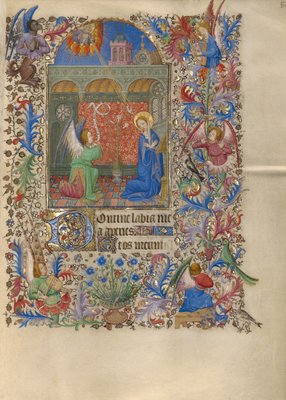 Domine labia me
a aperies
Et os meum